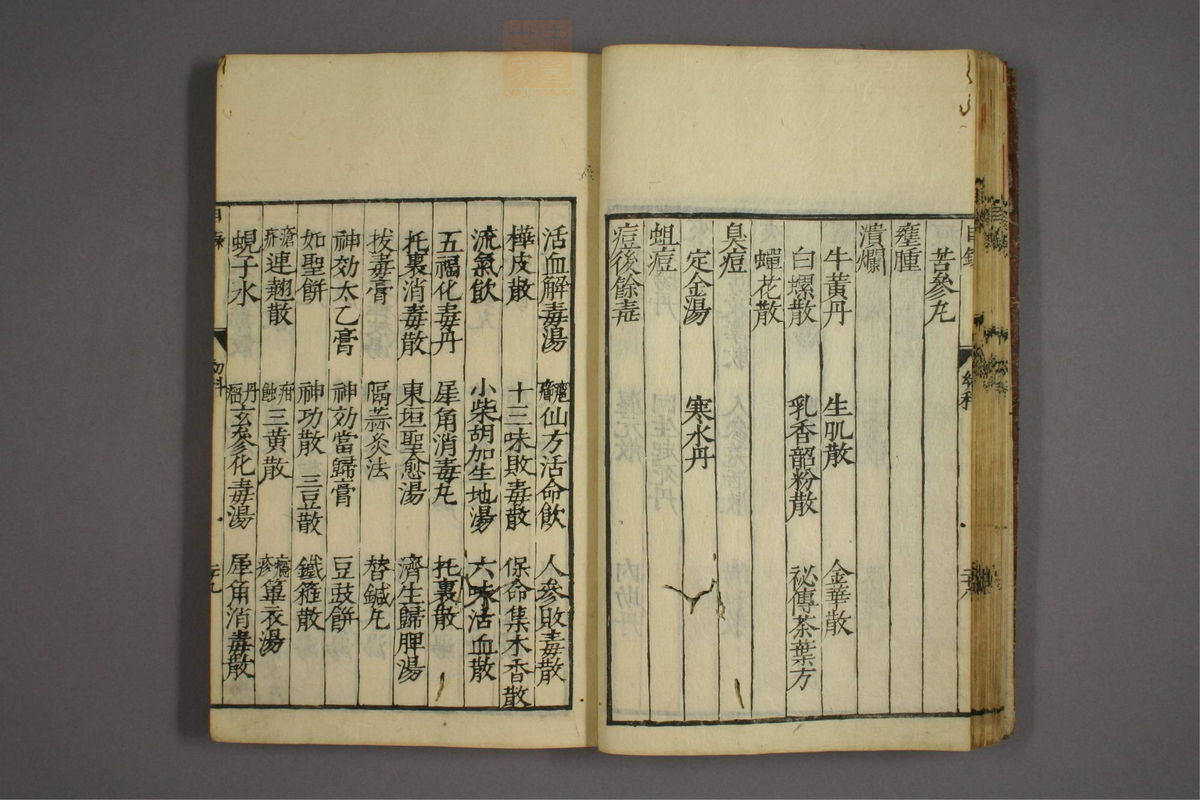 目錄 幼科
苦參丸
壅腫
潰爛
牛黄丹 生肌散 金華散
白螺散 乳香韶粉散 祕傳茶葉方
蟬花散
臭痘
定金湯 寒水丹
蛆痘
痘後餘毒
活血解毒湯 癰癤仙方活命飲 人參敗毒散
樺皮散 十三味敗毒散 保命集木香散
流氣飲 小柴胡加生地湯 六味活血散
五福化毒丹 犀角消毒丸 托裏散
托裏消毒散 東垣聖愈湯 濟生歸脾湯
拔毒膏 隔蒜灸法 替鍼丸
神効太乙膏 神効當歸膏 豆豉餅
如聖餅 神功散 三豆散 鐵箍散
瘡疥連翹散 疳蝕三黄散 癮疹單衣湯
蜆子水 丹瘤玄參化毒湯 犀角消毒散
目錄 幼科 二十九